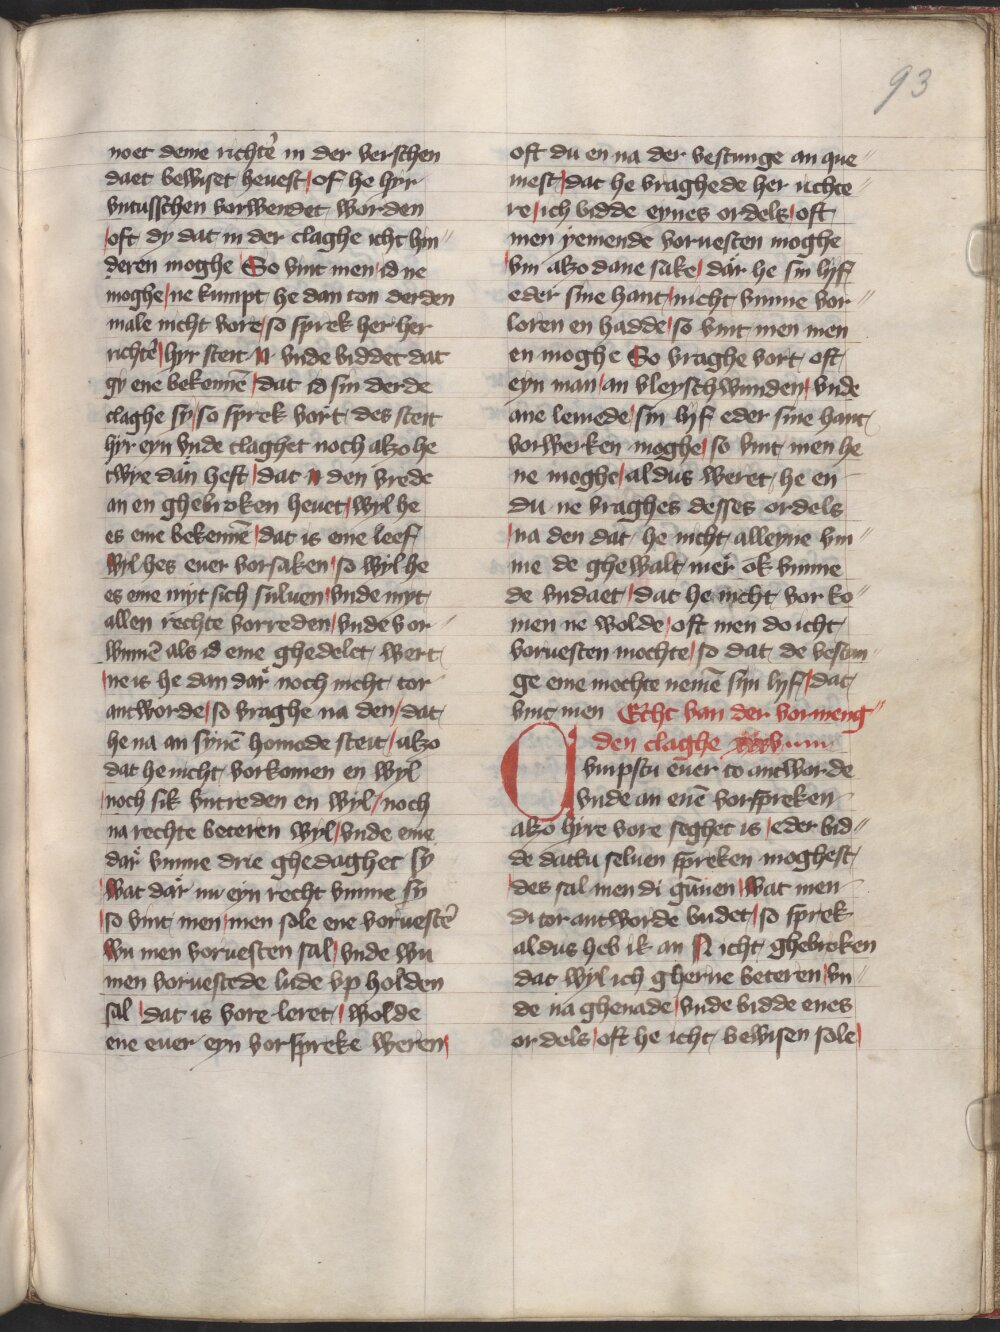 93
noet deme richte᷑ in der verschen
daet bewiset hevest / of he hyr
vntusschen vorwendet worden
/ oft dy dat in der claghe icht hin〃
deren moghe So vint men / id ne
moghe / ne kumpt he dan ton derden
male nicht vore / so sprek her her
richte᷑ / hyr steit N vnde biddet dat
gy ene bekennē / dat id sin derde
claghe sy / so sprek vort / des steit
hyr eyn vnde claghet noch alzo he
twye dan heft / dat N den vrede
an en ghebroken hevet / wyl he
es eme bekennē / dat is eme leef
wyl hes euer vorsaken / so wyl he
es eme myt sich suluen / vnde myt
allen rechte vorreden / vnde vor〃
wnnē als id eme ghedelet wert
/ ne is he dan dar noch nicht tor
antworde / so vraghe na den / dat
he na an synē homode steit / alzo
dat he nicht vorkomen en wyl
/ noch sik vntreden en wyl / noch
na rechte beteren wyl / vnde eme
dar vmme drie ghedaghet sy
wat dar nu eyn recht vmme sy
/ so vint men / men sole ene vorueste᷑
wu men voruesten sal / vnde wu
men voruestede lude vp holden
sal / dat is vore leret / / wolde
ene euer eyn vorspreke weren /
oft du en na der vestunge an que〃
mest / dat he vraghede her richte〃
re / ich bidde eynes ordels / oft
men yemende voruesten moghe
/ vm alzo dane sake / dar he sin lyf
eder sine hant / nicht vmme vor〃
loren en hadde / so vint men men
en moghe So vraghe vort / oft
eyn man / an vleyschwunden / vnde
ane lemede / sin lyf eder sine hant
vorwerken moghe / so vint men he
ne moghe / aldus weret he en
du ne vraghes desses ordels
/ na den dat he nicht alleyne vm〃
me de ghewalt mer ok vmme
de vndaet / dat he nicht vor ko〃
men ne wolde / oft men do icht
voruesten mochte / so dat de vestun〃
ge eme mochte nemē syn lyf / dat
vint men Echt van der vormeng〃
den claghe
vmpstu euer to antworde
vnde an enē vorspreken
alzo hyre vore seghet is / eder bid〃
de dattu seluen spreken moghest
/ des sal men di gunen / wat men
di tor antworde budet / so sprek
aldus heb ik an N icht ghebroken
dat wyl ich gherne beteren / vn〃
de na ghenade / vnde bidde enes
ordels / oft he icht bewisen sole /